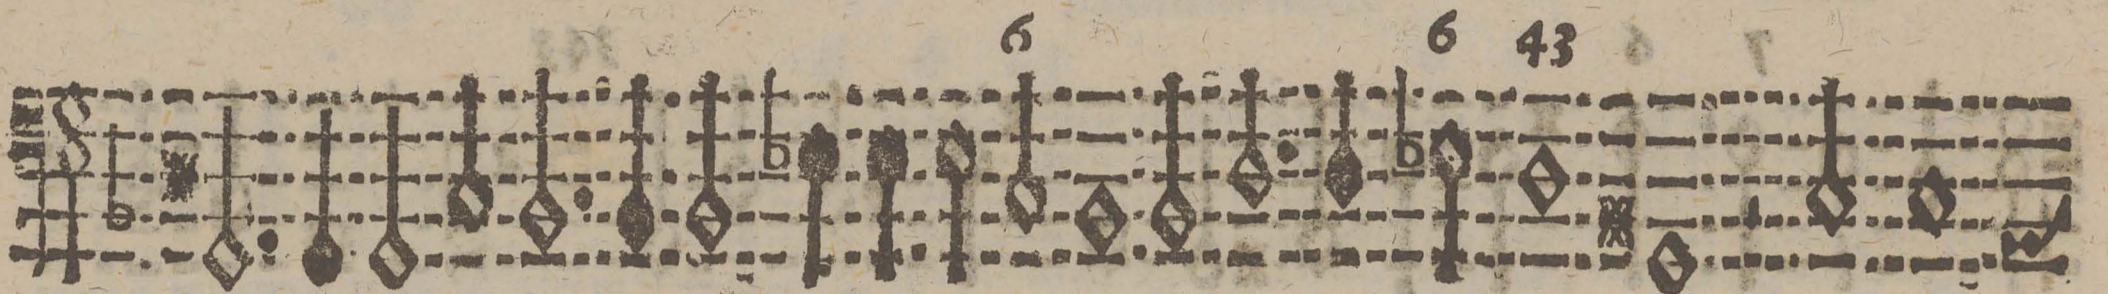 6 6 43